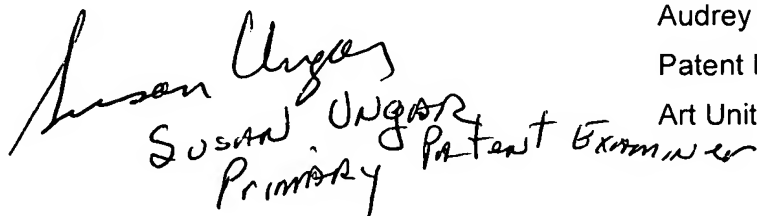 Audrey
Patent
Art Unit
Susan Ungar
SUSAN UNGAR
Primary Patent Examiner